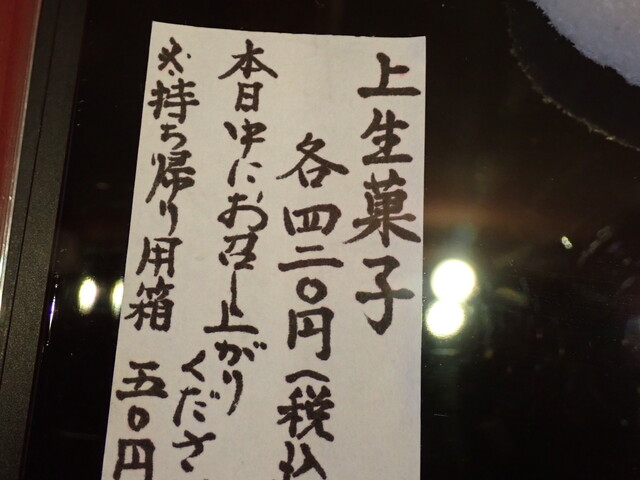 上生菓子
各四二〇円(税込
本日中にお召し上がり
くださ
※持ち帰り用箱 五〇円